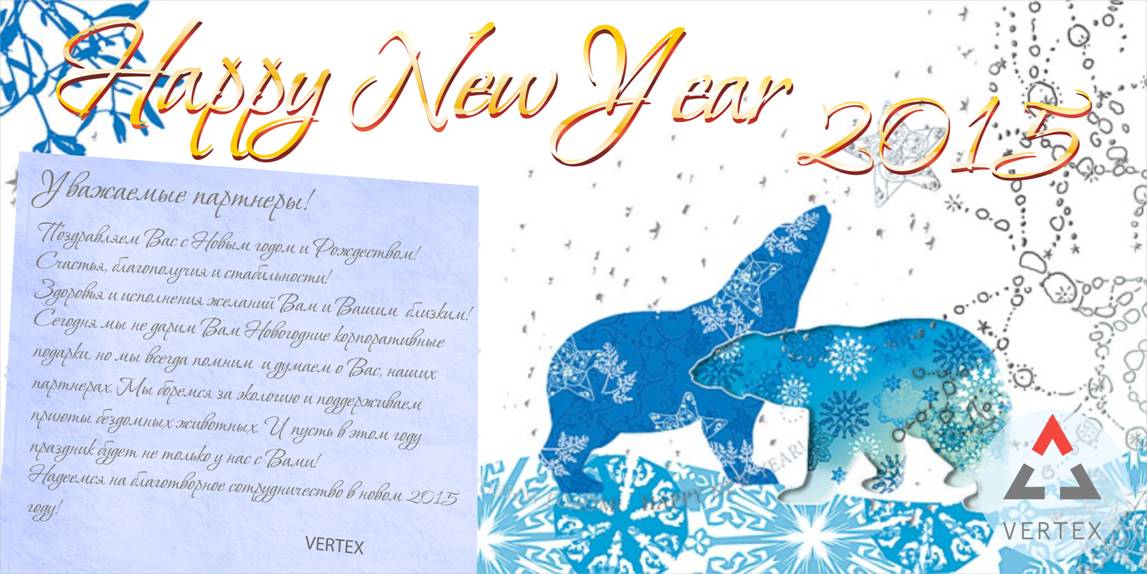 Happy New Year 2015
Уважаемые партнеры!
Поздравляем Вас с Новым годом и Рождеством!
Счастья, благополучия и стабильности!
Здоровья и исполнения желаний Вам и Вашим близким!
Сегодня мы не дарим Вам Новогодние корпоративные
подарки, но мы всегда помним и думаем о Вас, наших
партнерах. Мы боремся за экологию и поддерживаем
приюты бездомных животных. И пусть в этом году
праздник будет не только у нас с Вами!
Надеемся на благотворное сотрудничество в новом 2015
году!
VERTEX
VERTEX